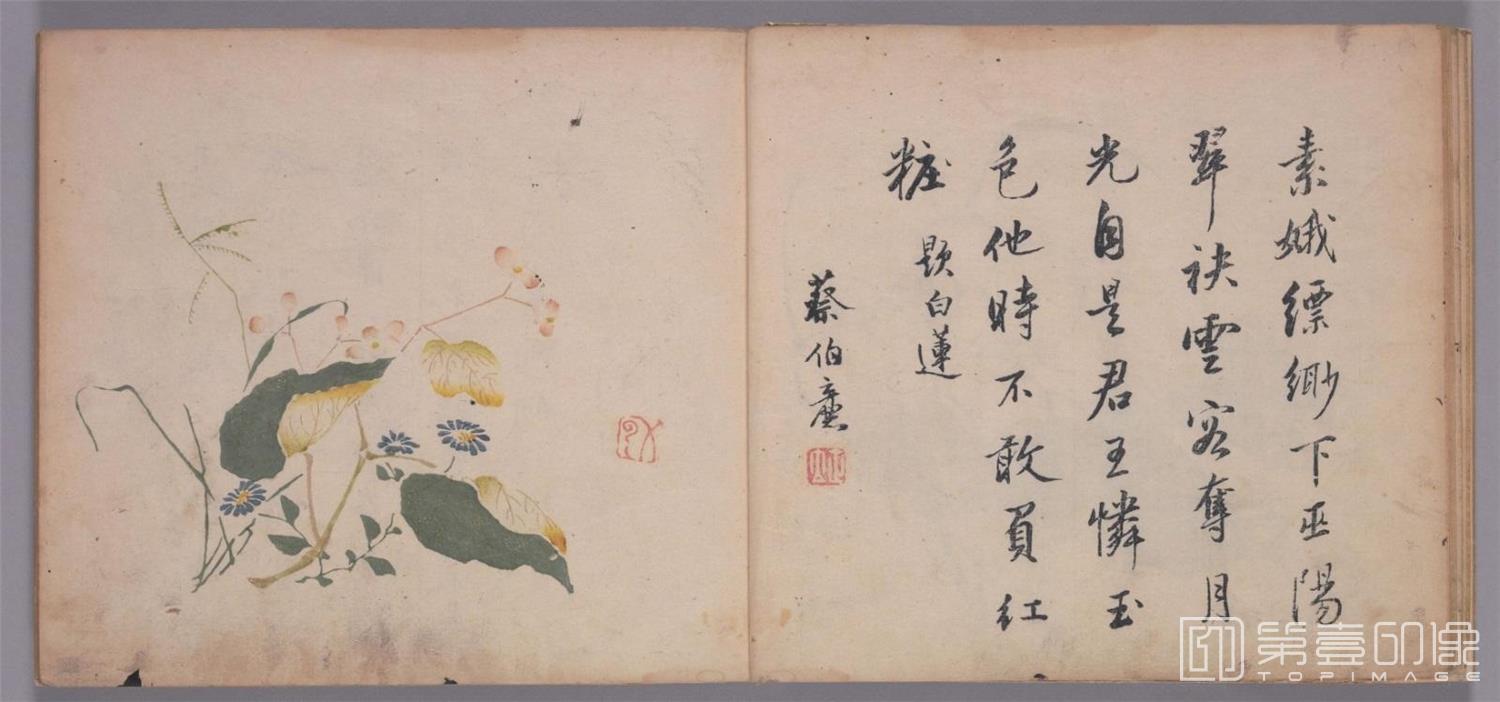 素娥縹緲下巫陽
翠袂雲容奪月
光自是君王憐玉
色他時不敢買紅
粧
題白蓮
蔡伯
第壹印像
TOPIMAGE